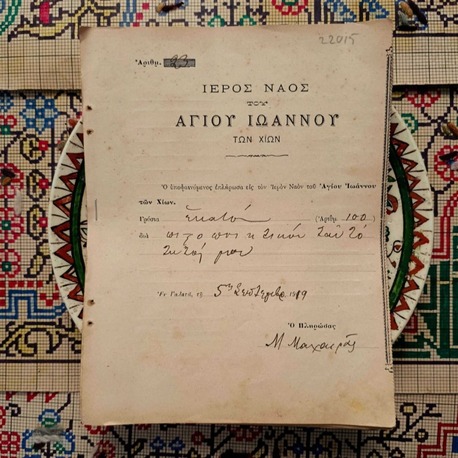 22015
Ἀριθμ.
ΙΕΡΟΣ ΝΑΟΣ
ΤΟΥ
ΑΓΙΟΥ ΙΩΑΝΝΟΥ
ΤΩΝ ΧΙΩΝ
Ὁ ὑποφαινόμενος ἐπλήρωσα εἰς τὸν Ἱερὸν Ναὸν τοῦ Ἁγίου Ἰωάννου
τῶν Χίων.
Γρόσια Ἑκατόν (Ἀριθμ. 100)
διὰ
μου
Ἐν Γαλατᾷ, τῇ 5ῃ Σεπτεμβρ 1919
Ὁ Πληρώσας
Μ Μαχαιρᾶς